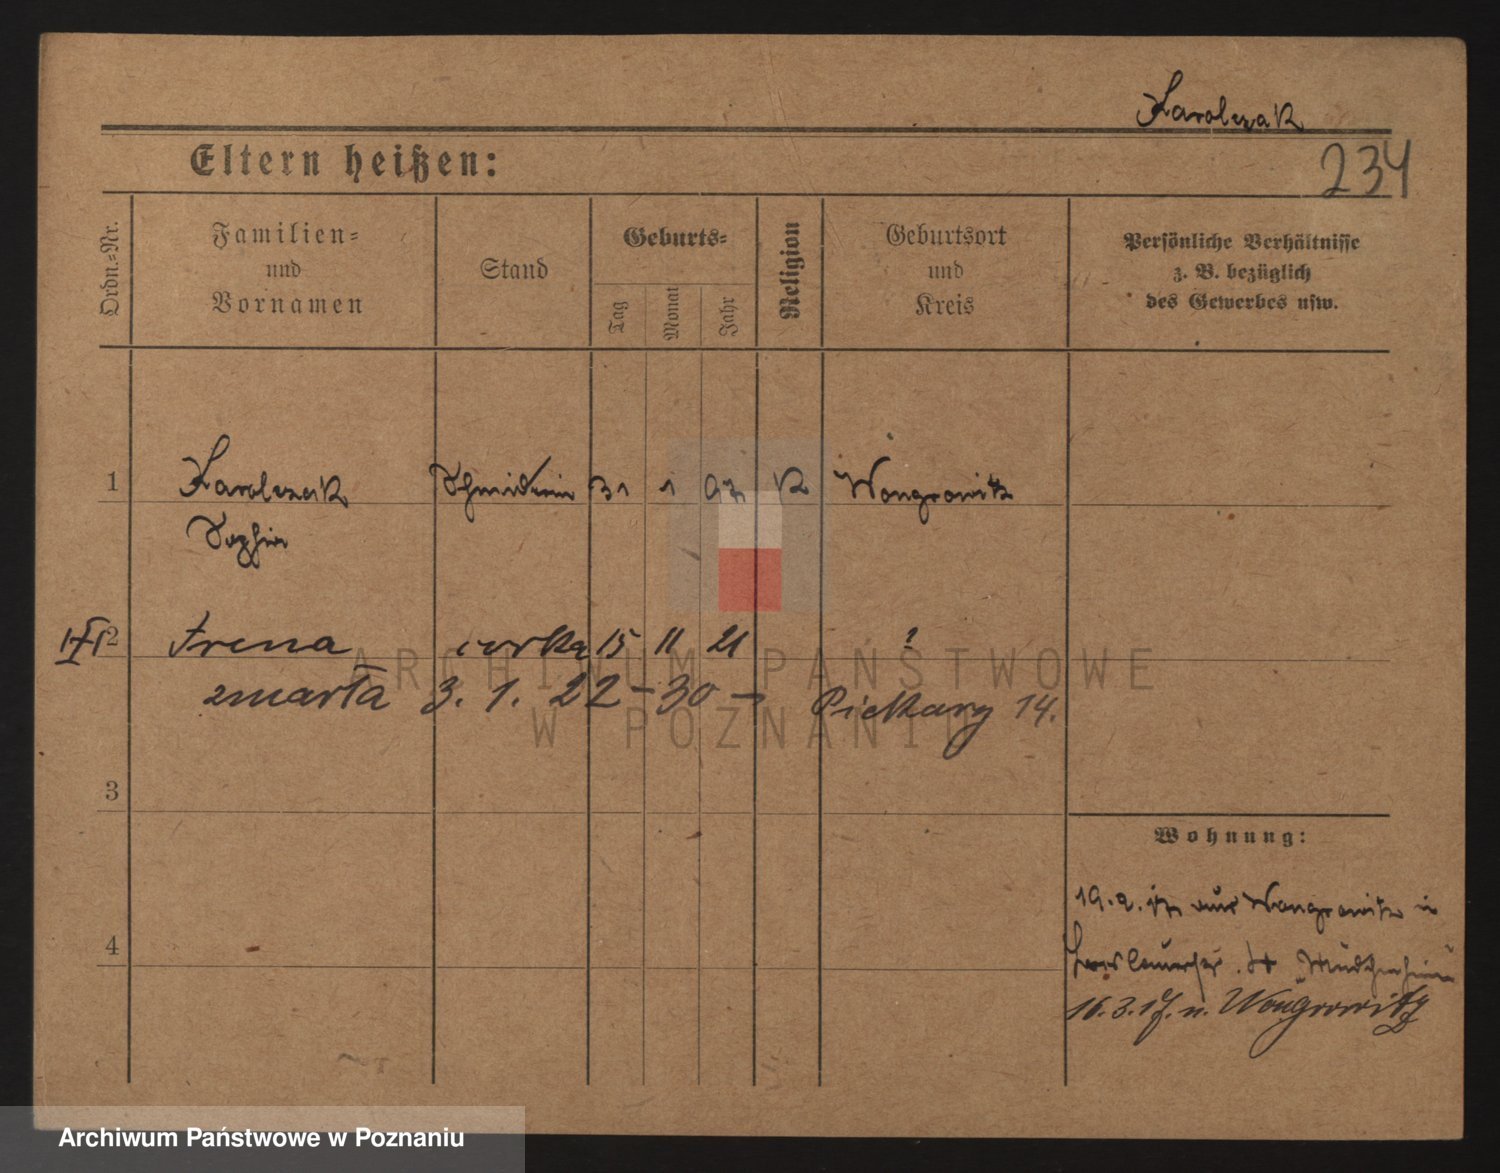 Karolczak
Eltern heißen:
234
Ordn.-Nr.
Familien-
und
Vornamen
Stand
Geburts-
Tag
Monat
Jahr
Religion
Geburtsort
und
Kreis
Persönliche Verhältnisse
z. B. bezüglich
des Gewerbes usw.
1 Karolczak 31 1 97 K Wongrowitz
Sophie
2 Irena corka 15 11 21 ?
zmarła 3. 1. 22 – 30 – Piekary 14.
3
Wohnung:
19. 2. 17 aus Wongrowitz in
4
16. 3. 17. n. Wongrowitz
ARCHIWUM PAŃSTWOWE
W POZNANIU
Archiwum Państwowe w Poznaniu